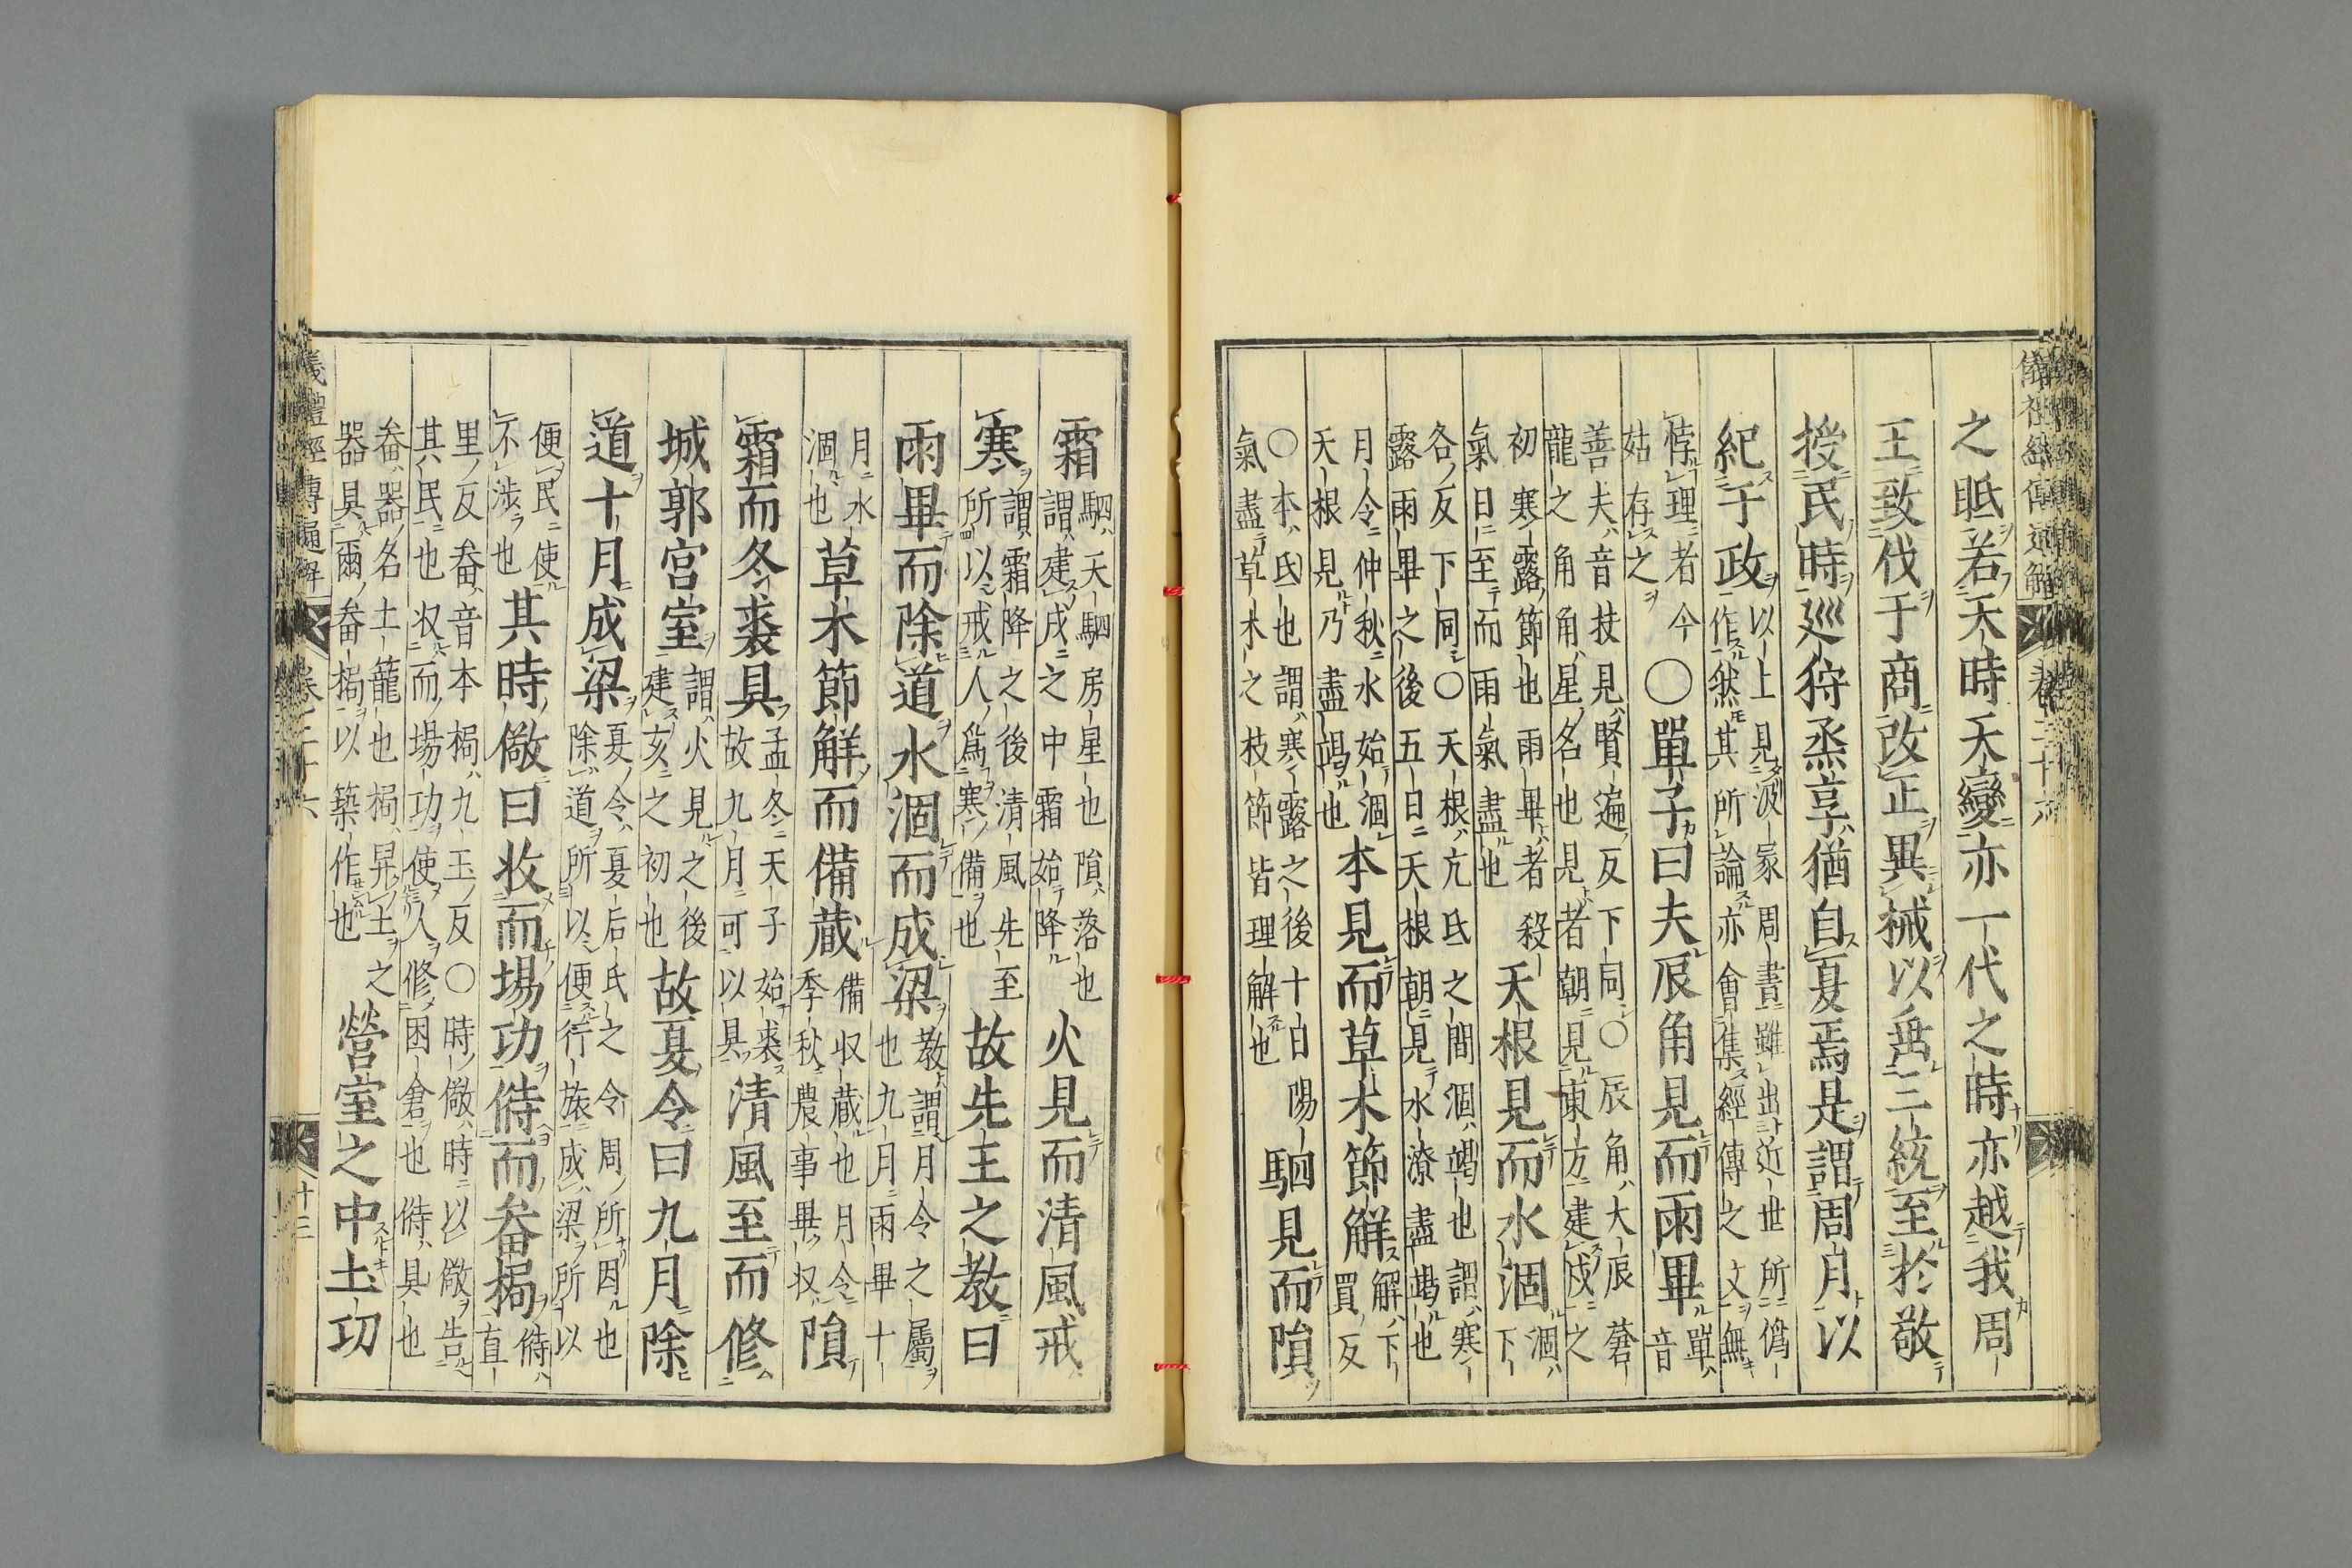 之眡若天時大變亦一代之時亦越我周
王致伐于商改正異械以垂三統至於敬
授民時巡狩烝享猶自夏焉是謂周月以
紀于政以上見汲冢周書雖出近世所僞
作然其所論亦會集經傳之文無
悖理者今
姑存之○單子曰夫辰角見而雨畢單音
善夫音扶見賢遍反下同○辰角大辰蒼
龍之角角星名也見者朝見東方建戌之
初寒露節也雨畢者殺
氣日至而雨氣盡也天根見而水涸涸下
各反下同○天根亢氐之間涸竭也謂寒
露雨畢之後五日天根朝見水潦盡竭也
月令仲秋水始涸
天根見乃盡竭也本見而草木節解解下
買反
○本氐也謂寒露之後十日陽
氣盡草木之枝節皆理解也駟見而隕
霜駟天駟房星也隕落也
謂建戌之中霜始降火見而清風戒
寒謂霜降之後清風先至
所以戒人爲寒備也故先王之教曰
雨畢而除道水涸而成梁教謂月令之屬
也九月雨畢十
月水
涸也草木節解而備藏備收藏也月令
季秋農事畢收隕
霜而冬裘具孟冬天子始裘
故九月可以具清風至而修
城郭宮室謂火見之後
建亥之初也故夏令曰九月除
道十月成梁夏令夏后氏之令周所因也
除道所以便行旅成梁所以
便民使
不涉也其時儆曰收而場功偫而畚梮偫
直
里反畚音本梮九玉反○時儆時以儆告
其民也收而場功使人修囷倉也偫具也
畚器名土籠也梮舁土之
器具爾畚梮以築作也營室之中土功
儀禮經傳通解 卷二十六 十三